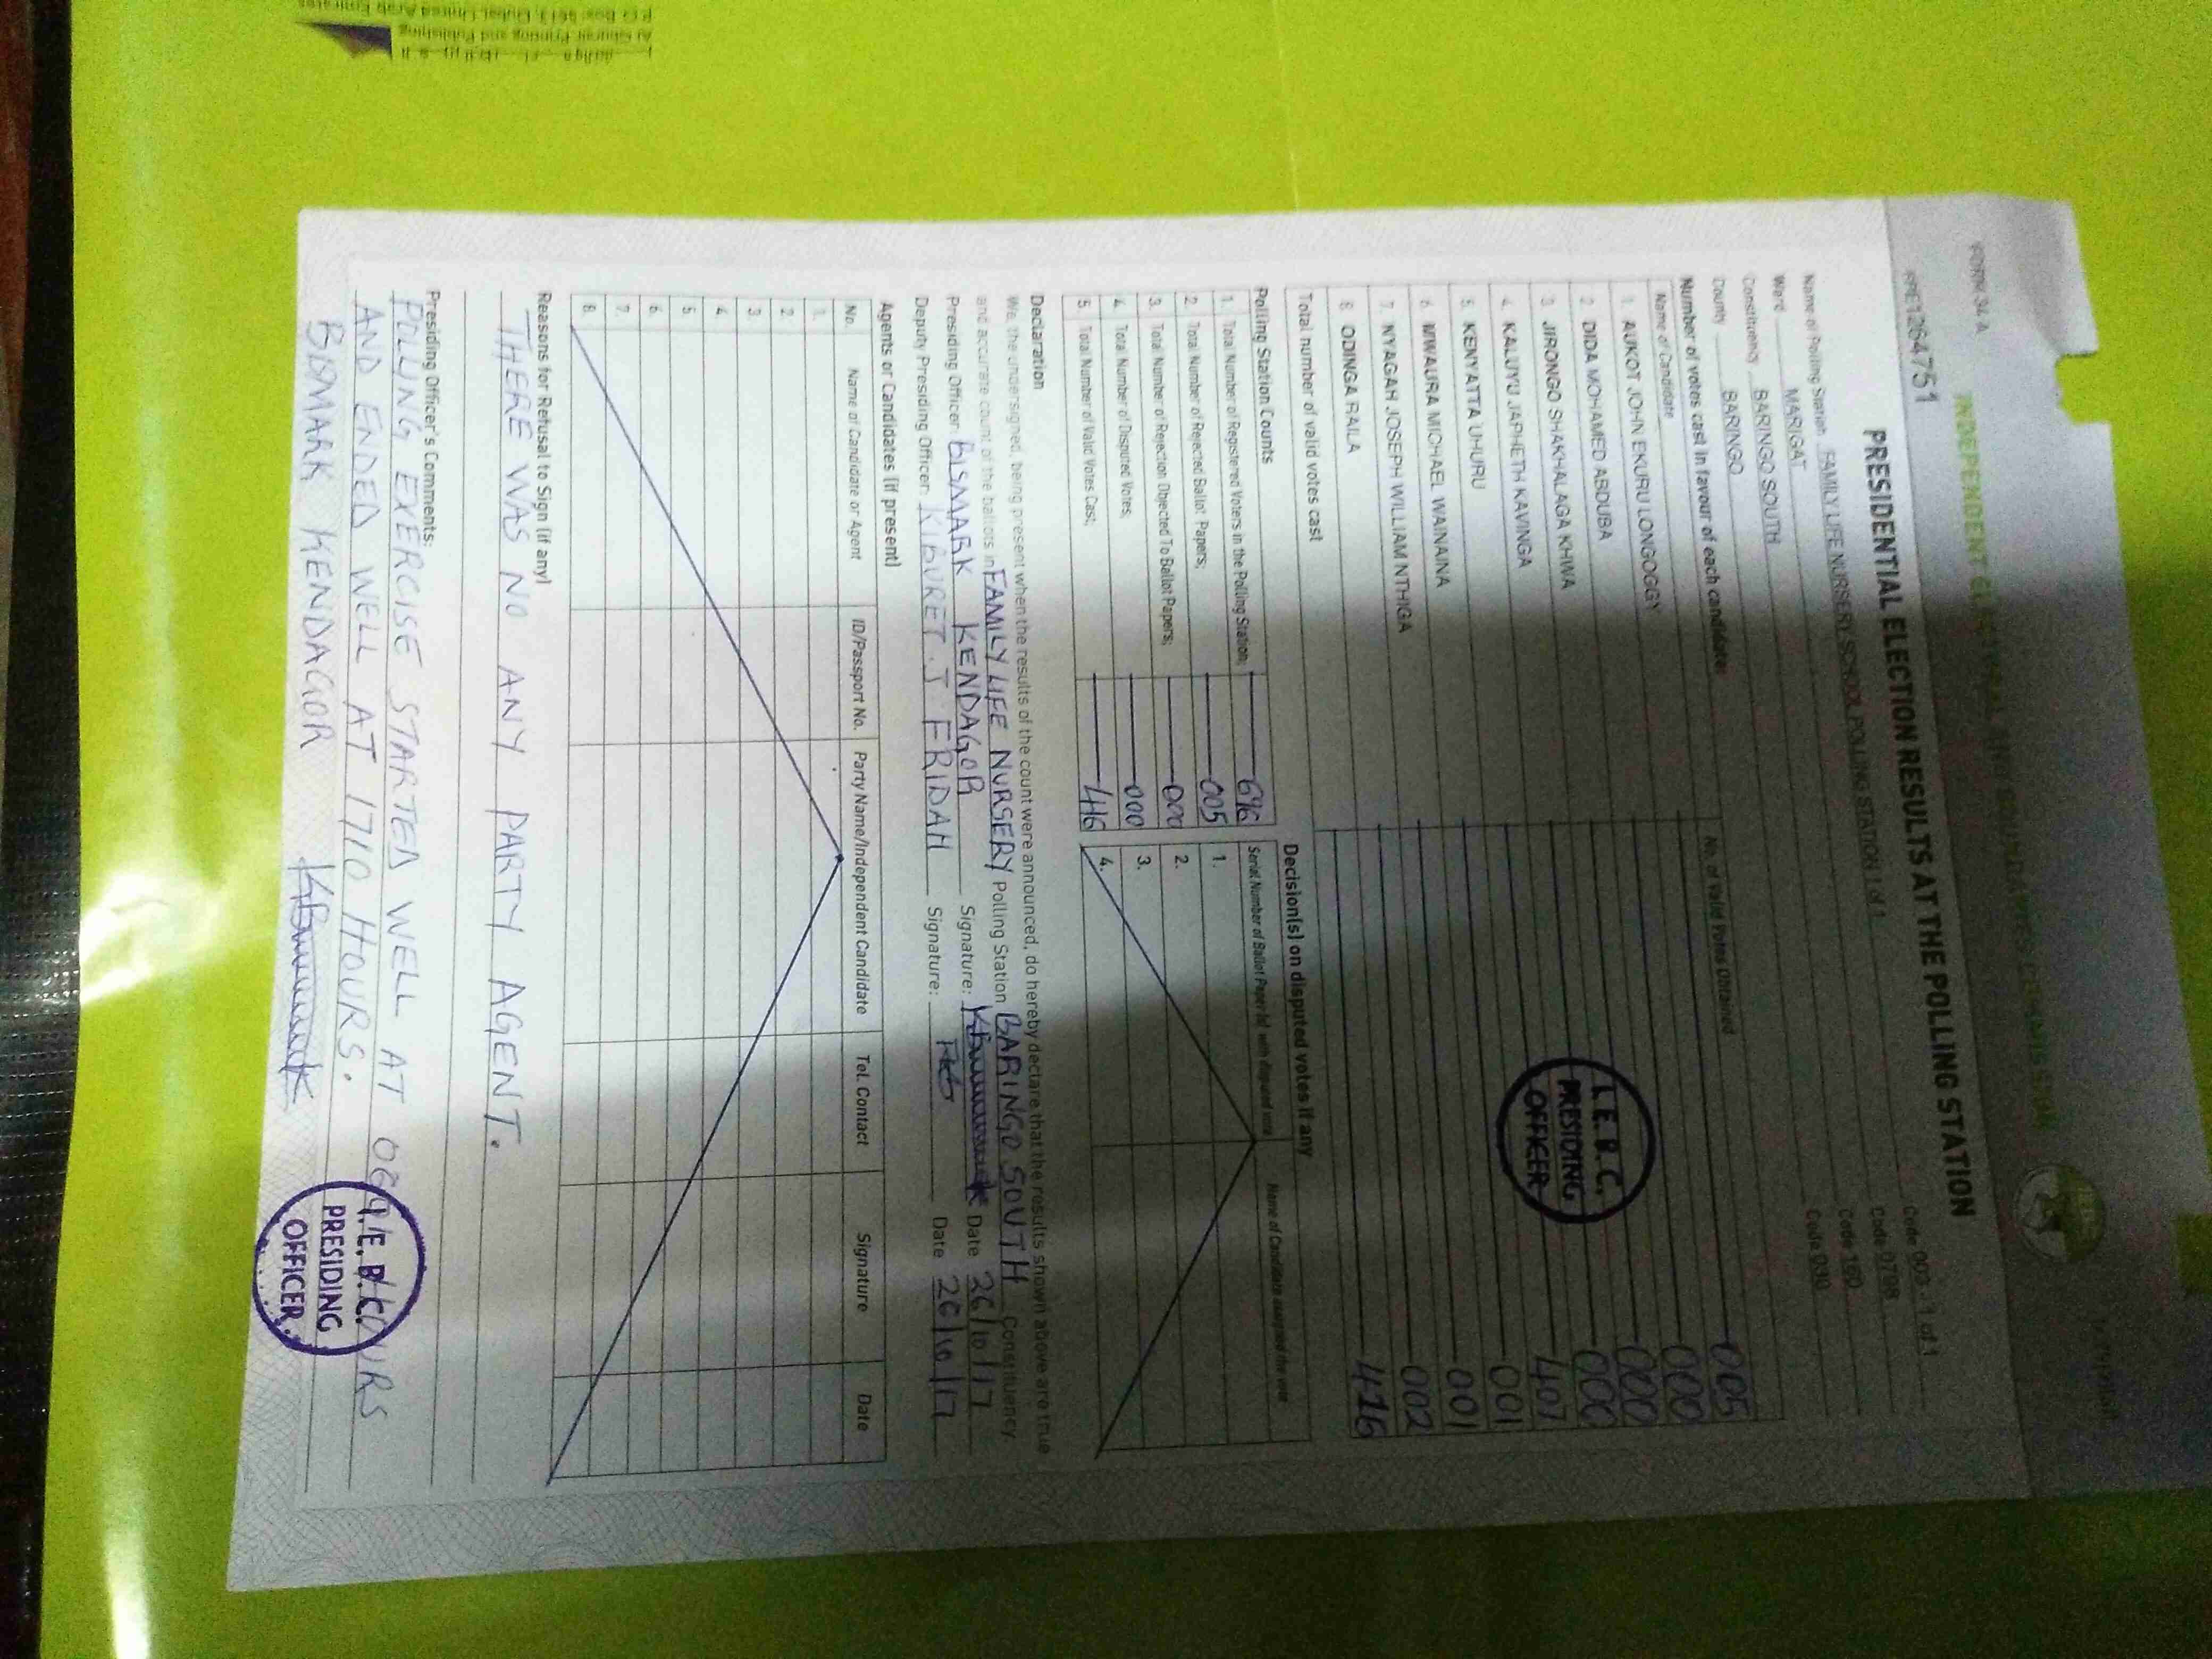 FORM 34 A
INDEPENDENT ELECTORAL AND BOUNDARIES COMMISSION
PRE1264751
PRESIDENTIAL ELECTION RESULTS AT THE POLLING STATION
Name of Polling Station FAMILY LIFE NURSERY SCHOOL POLLING STATION 1 of 1 Code 003 - 1 of 1
Ward MARIGAT Code 0798
Constituency BARINGO SOUTH Code 160
County BARINGO Code 030
Number of votes cast in favour of each candidate:
Name of Candidate No. of Valid Votes Obtained
1. AUKOT JOHN EKURU LONGOGGY 005
2. DIDA MOHAMED ABDUBA 000
3. JIRONGO SHAKHALAGA KHWA 000
4. KALUYU JAPHETH KAVINGA 000
5. KENYATTA UHURU 407
6. MWAURA MICHAEL WAINAINA 001
7. NYAGAH JOSEPH WILLIAM NTHIGA 001
8. ODINGA RAILA 002
Total number of valid votes cast 416
I.E.B.C.
PRESIDING
OFFICER
Polling Station Counts
1. Total Number of Registered Voters in the Polling Station; 696
2. Total Number of Rejected Ballot Papers; 005
3. Total Number of Rejection Objected To Ballot Papers; 000
4. Total Number of Disputed Votes; 000
5. Total Number of Valid Votes Cast; 416
Decision(s) on disputed votes if any
Name of Candidate assigned the vote
1.
2.
3.
4.
Declaration
We, the undersigned, being present when the results of the count were announced, do hereby declare that the results shown above are true
and accurate count of the ballots in FAMILY LIFE NURSERY Polling Station BARINGO SOUTH Constituency.
Presiding Officer: BISMARK KENDAGOR Signature: Date 26/10/17
Deputy Presiding Officer: KIBURET .J FRIDAH Signature: Date 26/10/17
Agents or Candidates (if present)
No. Name of Candidate or Agent ID/Passport No. Party Name/Independent Candidate Tel. Contact Signature Date
1.
2.
3.
4.
5.
6.
7.
8.
Reasons for Refusal to Sign (if any)
THERE WAS NO ANY PARTY AGENT.
Presiding Officer's Comments:
POLLING EXERCISE STARTED WELL AT HOURS
AND ENDED WELL AT 1710 HOURS.
BISMARK KENDAGOR
I.E.B.C.
PRESIDING
OFFICER
Al Ghurair Printing and Publishing
Dubai, United Arab Emirates